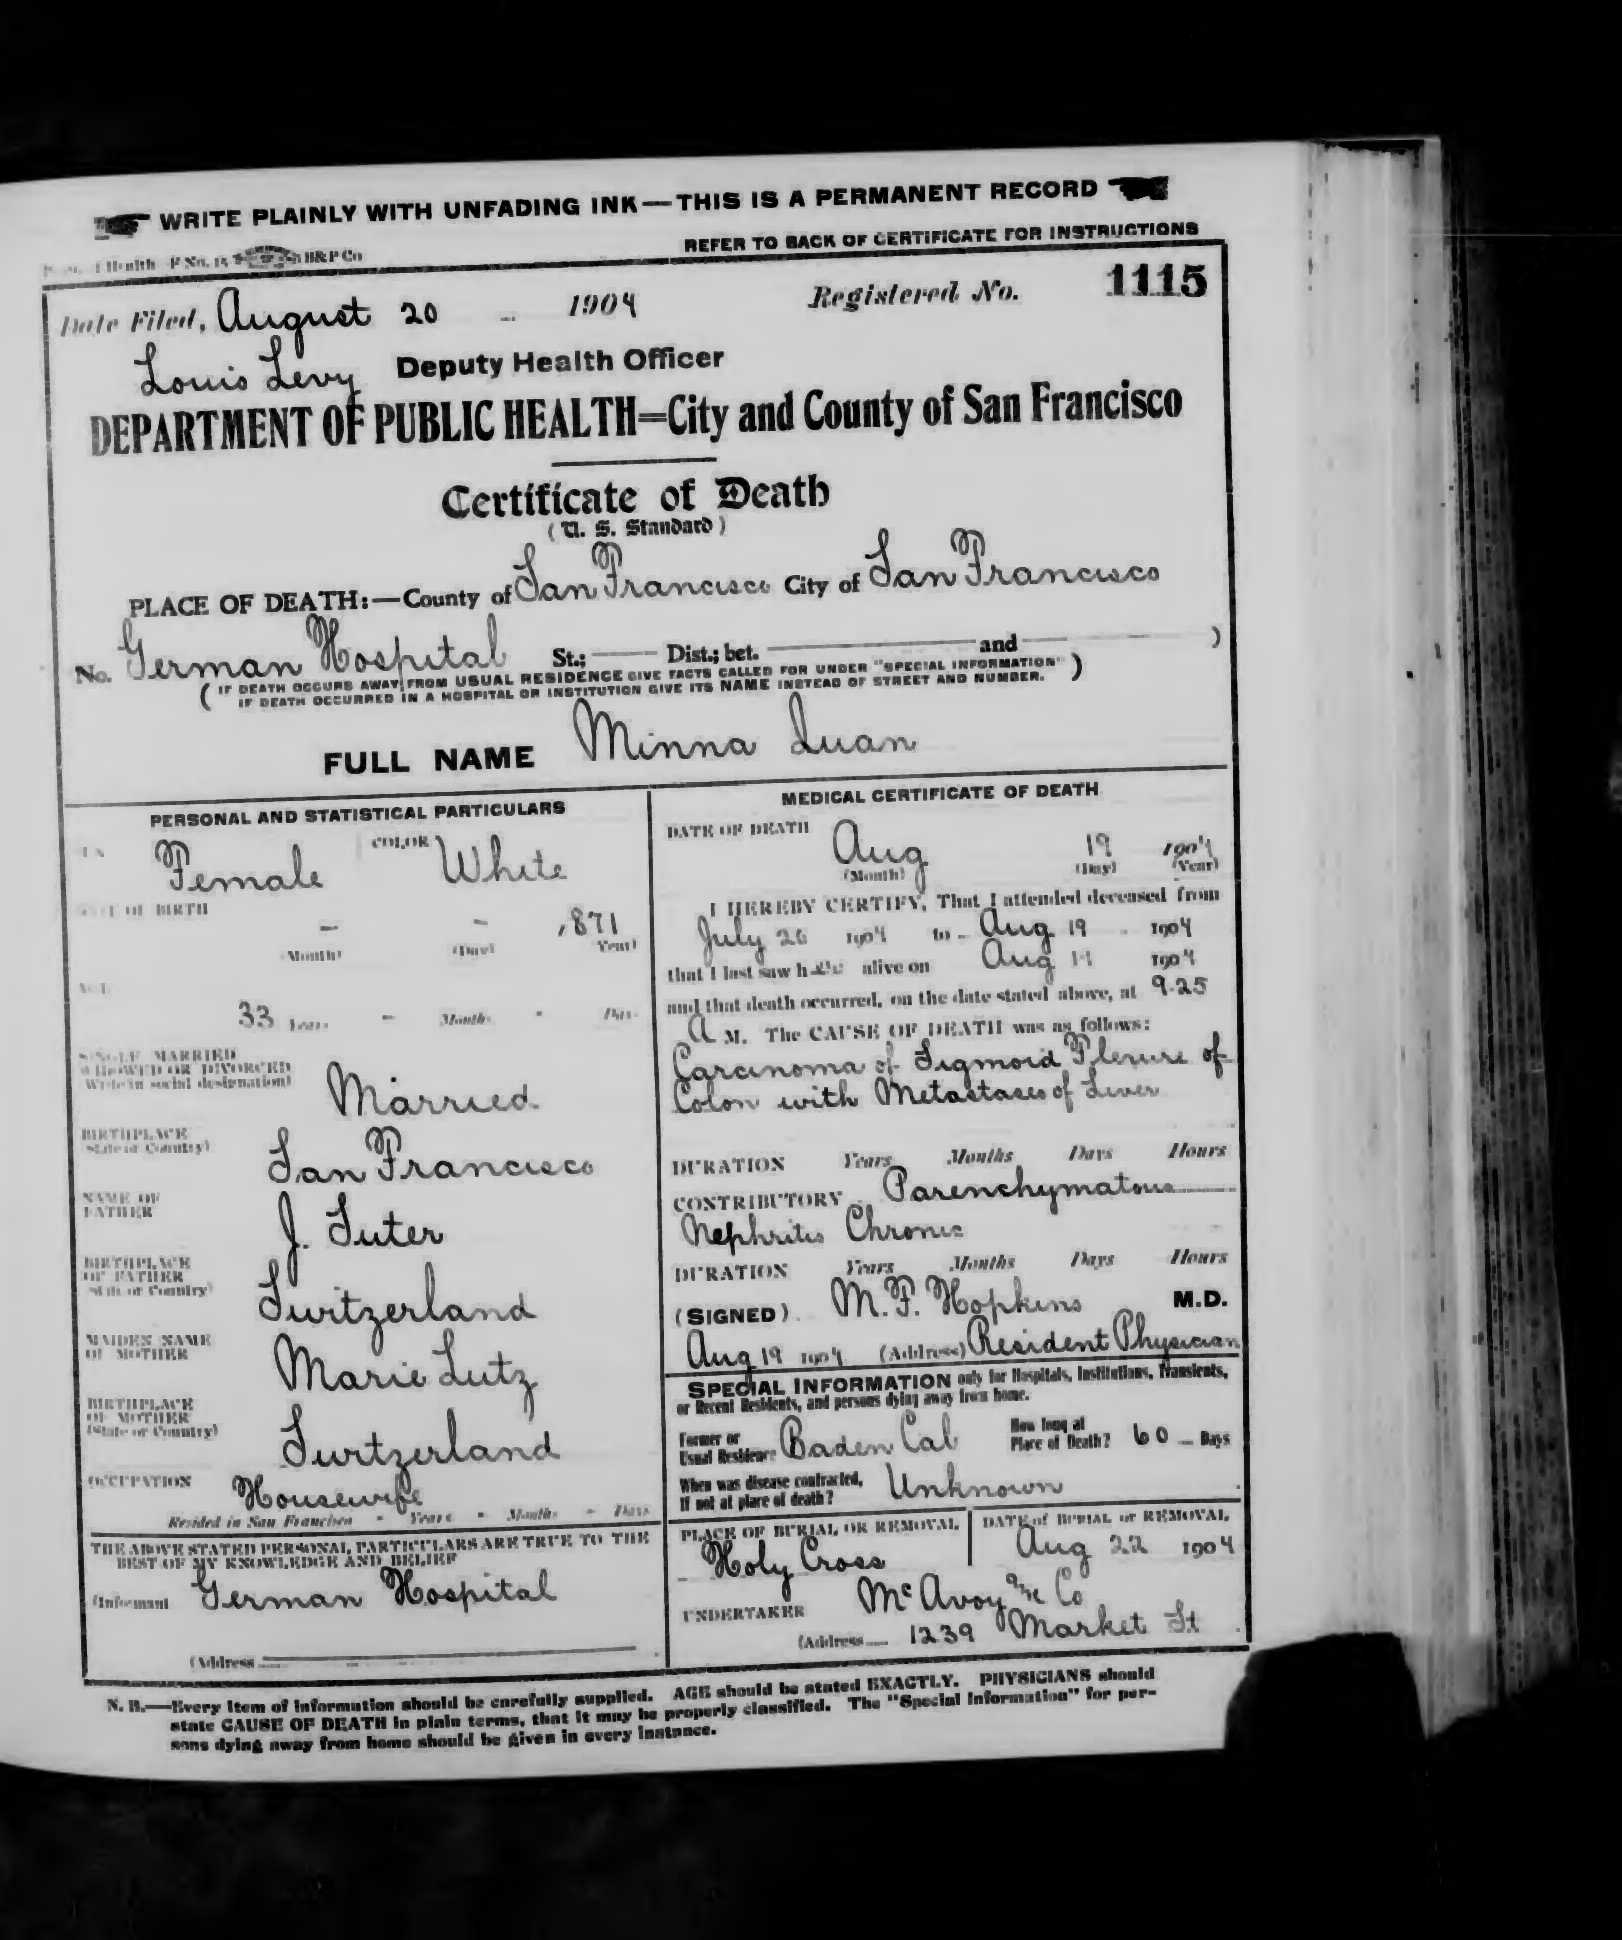 WRITE PLAINLY WITH UNFADING INK—THIS IS A PERMANENT RECORD
REFER TO BACK OF CERTIFICATE FOR INSTRUCTIONS
Health F No. 15 H&P Co
Date Filed, August 20 - 1904 Registered No. 1115
Louis Levy Deputy Health Officer
DEPARTMENT OF PUBLIC HEALTH=City and County of San Francisco
Certificate of Death
(U. S. Standard)
PLACE OF DEATH:—County of San Francisco City of San Francisco
No. German Hospital St.; —— Dist.; bet. —— and —— )
( IF DEATH OCCURS AWAY FROM USUAL RESIDENCE GIVE FACTS CALLED FOR UNDER "SPECIAL INFORMATION" )
IF DEATH OCCURRED IN A HOSPITAL OR INSTITUTION GIVE ITS NAME INSTEAD OF STREET AND NUMBER.
FULL NAME Minna Luan
PERSONAL AND STATISTICAL PARTICULARS
SEX Female COLOR White
DATE OF BIRTH
- - 1871
(Month) (Day) (Year)
AGE
33 Years - Months - Days
SINGLE MARRIED
WIDOWED OR DIVORCED
(Write in social designation)
Married
BIRTHPLACE
(State or Country)
San Francisco
NAME OF
FATHER
J. Suter
BIRTHPLACE
OF FATHER
(State or Country)
Switzerland
MAIDEN NAME
OF MOTHER
Marie Lutz
BIRTHPLACE
OF MOTHER
(State or Country)
Switzerland
OCCUPATION
Housewife
Resided in San Francisco - Years - Months - Days
THE ABOVE STATED PERSONAL PARTICULARS ARE TRUE TO THE
BEST OF MY KNOWLEDGE AND BELIEF
(Informant German Hospital
(Address
MEDICAL CERTIFICATE OF DEATH
DATE OF DEATH
Aug 19 1904
(Month) (Day) (Year)
I HEREBY CERTIFY, That I attended deceased from
July 26 1904 to Aug 19 1904
that I last saw her alive on Aug 19 1904
and that death occurred, on the date stated above, at 9.25
A M. The CAUSE OF DEATH was as follows:
Carcinoma of Sigmoid Flexure of
Colon with Metastases of Liver
DURATION Years Months Days Hours
CONTRIBUTORY Parenchymatous
Nephritis Chronic
DURATION Years Months Days Hours
(SIGNED) M. F. Hopkins M.D.
Aug 19 1904 (Address) Resident Physician
SPECIAL INFORMATION only for Hospitals, Institutions, Transients,
or Recent Residents, and persons dying away from home.
Former or
Usual Residence Baden Cal
How long at
Place of Death? 60 Days
When was disease contracted,
If not at place of death? Unknown
PLACE OF BURIAL OR REMOVAL
Holy Cross
DATE of BURIAL or REMOVAL
Aug 22 1904
UNDERTAKER McAvoy & Co
(Address 1239 Market St
N. B.—Every Item of information should be carefully supplied. AGE should be stated EXACTLY. PHYSICIANS should
state CAUSE OF DEATH in plain terms, that it may be properly classified. The "Special Information" for per-
sons dying away from home should be given in every instance.